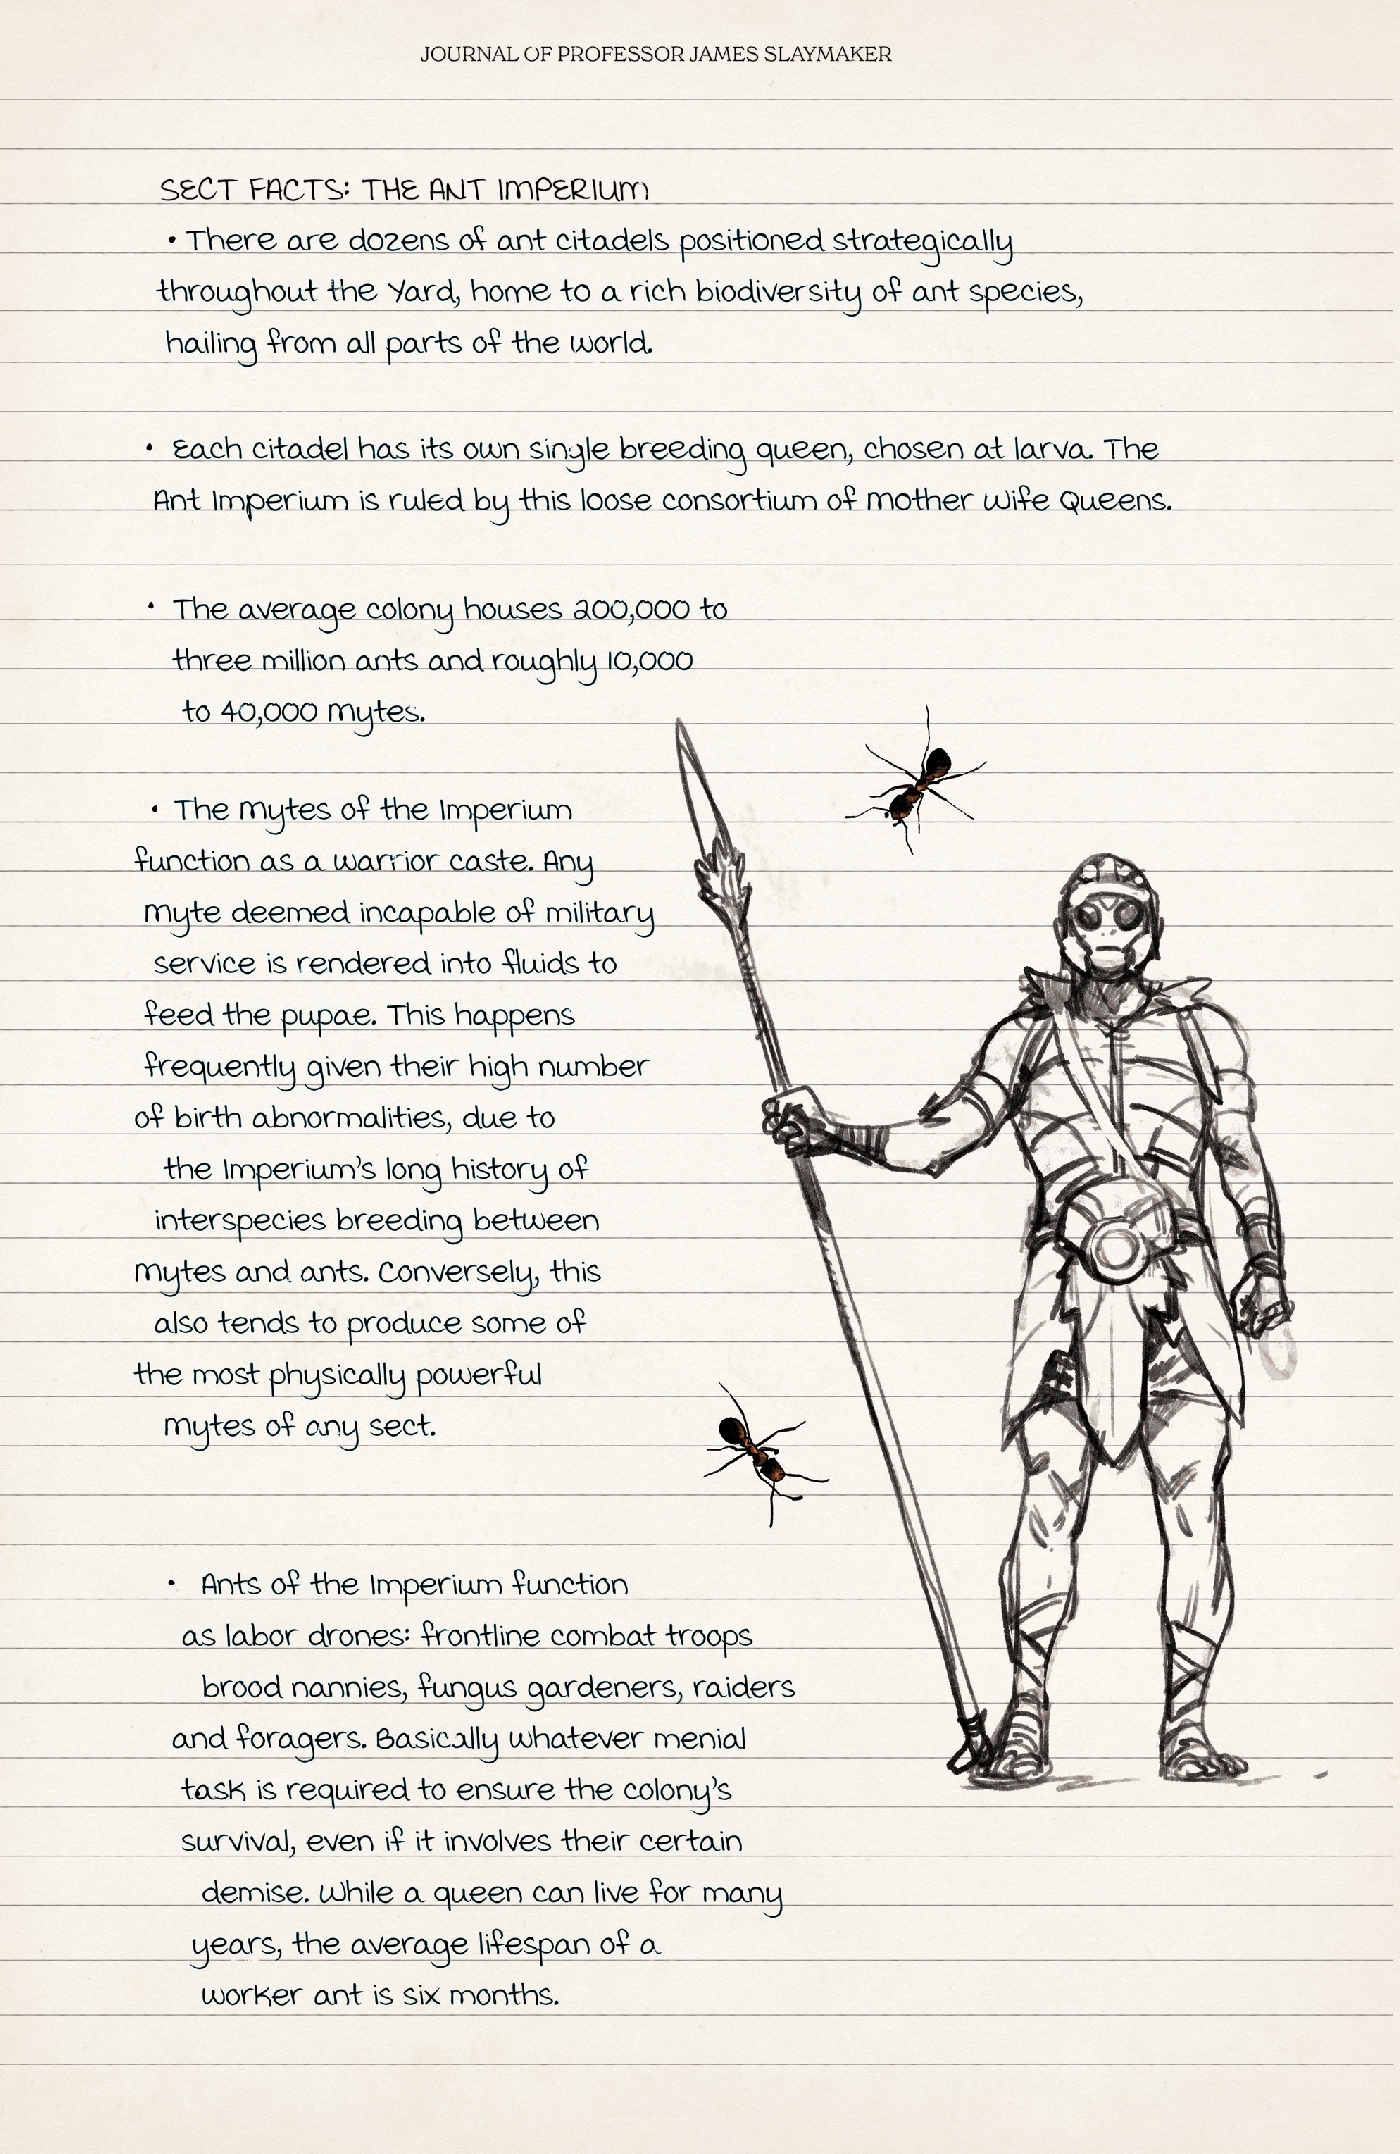 JOURNAL OF PROFESSOR JAMES SLAYMAKER
SECT FACTS: THE ANT IMPERIUM
• There are dozens of ant citadels positioned strategically
throughout the Yard, home to a rich biodiversity of ant species,
hailing from all parts of the world.
• Each citadel has its own single breeding queen, chosen at larva. The
Ant Imperium is ruled by this loose consortium of Mother Wife Queens.
• The average colony houses 200,000 to
three million ants and roughly 10,000
to 40,000 mytes.
• The Mytes of the Imperium
function as a warrior caste. Any
myte deemed incapable of military
service is rendered into fluids to
feed the pupae. This happens
frequently given their high number
of birth abnormalities, due to
the Imperium's long history of
interspecies breeding between
mytes and ants. Conversely, this
also tends to produce some of
the most physically powerful
mytes of any sect.
• Ants of the Imperium function
as labor drones: frontline combat troops
brood nannies, fungus gardeners, raiders
and foragers. Basically whatever menial
task is required to ensure the colony's
survival, even if it involves their certain
demise. While a queen can live for many
years, the average lifespan of a
worker ant is six months.